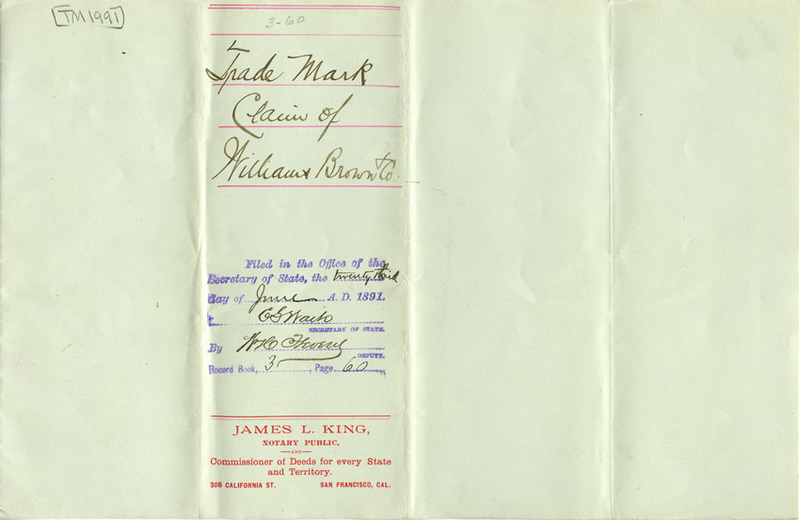 [TM1991]
3-60
Trade Mark
Claim of
Williams Brown & Co.
Filed in the Office of the
Secretary of State, the twenty third
day of June A. D. 1891.
E G Waite
SECRETARY OF STATE.
By
DEPUTY.
Record Book, 3, Page 60
JAMES L. KING,
NOTARY PUBLIC,
—AND—
Commissioner of Deeds for every State
and Territory.
308 CALIFORNIA ST. SAN FRANCISCO, CAL.